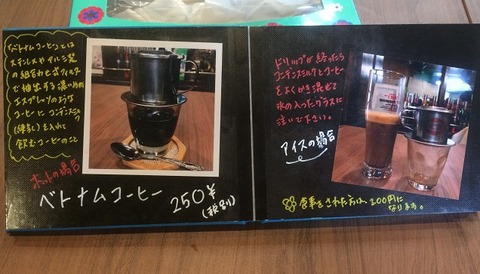 ベトナムコーヒーとは
ステンレスやアルミ製
の組合わせ式フィルター
で抽出する濃い めの
エスプレッソのような
コーヒーに コンデンスミルク
(練乳)を入れて
飲むコーヒーのこと
ホットの場合
ベトナムコーヒー 250¥
(税別)
ドリップが終ったら
コンデンスミルクとコーヒー
をよくかき混ぜて
氷の入ったグラスに
注いで下さい。
アイスの場合
食事をされた方は、200円に
なります。